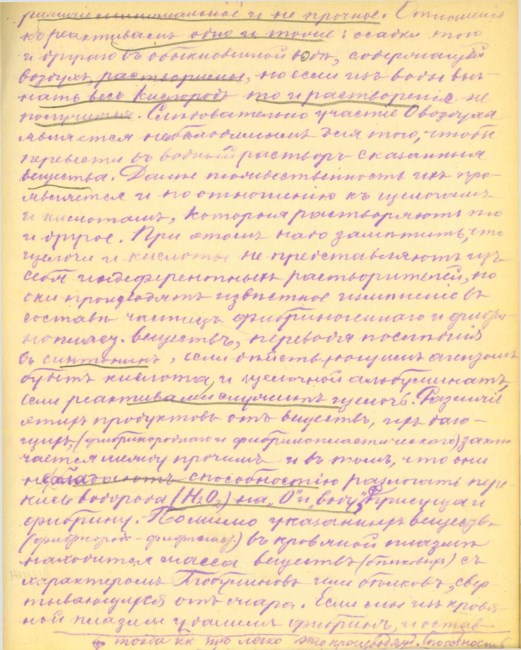 различіе минимальное и не прочное. Отношенія
къ реактивамъ одно и тоже: осадки того
и другаго въ обыкновенной водѣ, содержащей
воздухъ растворимы, но если изъ воды выг-
нать весь кислородъ то и растворенія не
получится. Слѣдовательно участіе О воздуха
является необходимымъ для того, чтобы
перевести въ водный растворъ сказанныя
вещества. Далѣе тождественность ихъ про-
является и по отношенію къ щелочамъ
и кислотамъ, которыя растворяютъ то
и другое. При этомъ надо замѣтить, что
щелочи и кислоты не представляютъ изъ
себя индеферентныхъ растворителей, но
они производятъ извѣстное измѣненіе въ
составѣ частицъ фибриногеннаго и фибри-
нопласт. веществъ, переводя послѣднія
въ синтонинъ, если дѣйствующимъ агентомъ
будетъ кислота, и щелочной альбуминатъ,
если реактивами служитъ щелочь. Различіе
этихъ продуктовъ отъ веществъ, ихъ даю-
щихъ, (фибриногеннаго и фибринопластическаго) заклю-
чается между прочимъ и въ томъ, что они
не обладаютъ способностію разлагать пере
кись водорода (H₂O₂) на "О" и воду, присущая
фибрину. Помимо указанныхъ веществъ
въ кровяной плазмѣ
находится масса веществъ (бѣлковыхъ) съ
характеромъ Глобулиновъ или бѣлковъ, свер-
тывающихся отъ жара. Если мы изъ кровя-
ной плазмы удалимъ фибринъ, и остав-
тогда какъ это легко производятъ. способность